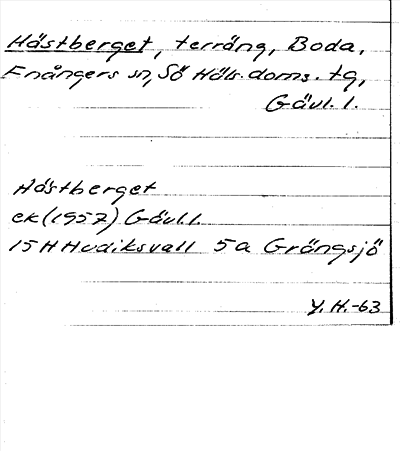 Hästberget, terräng, Boda,
Enångers sn, Sö Häls. doms. tg,
Gävl. l.
Hästberget
ek (1957) Gävl.l.
15 H Hudiksvall 5a Grängsjö
Y. H. -63